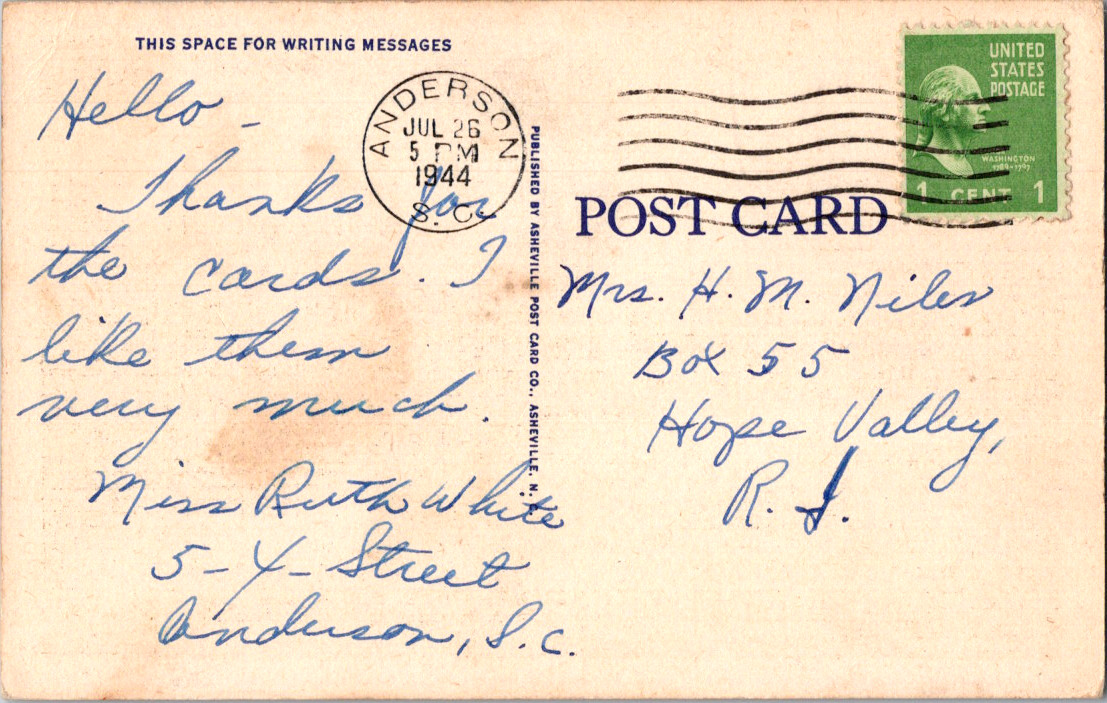 THIS SPACE FOR WRITING MESSAGES
Hello -
Thanks for
the cards. I
like them
very much.
Miss Ruth White
5-4-Street
Anderson, S.C.
ANDERSON
JUL 26
5 PM
1944
S. C.
PUBLISHED BY ASHEVILLE POST CARD CO., ASHEVILLE, N. C.
UNITED
STATES
POSTAGE
WASHINGTON
1789-1797
1 CENT 1
POST CARD
Mrs. H. M. Niles
Box 55
Hope Valley,
R. I.